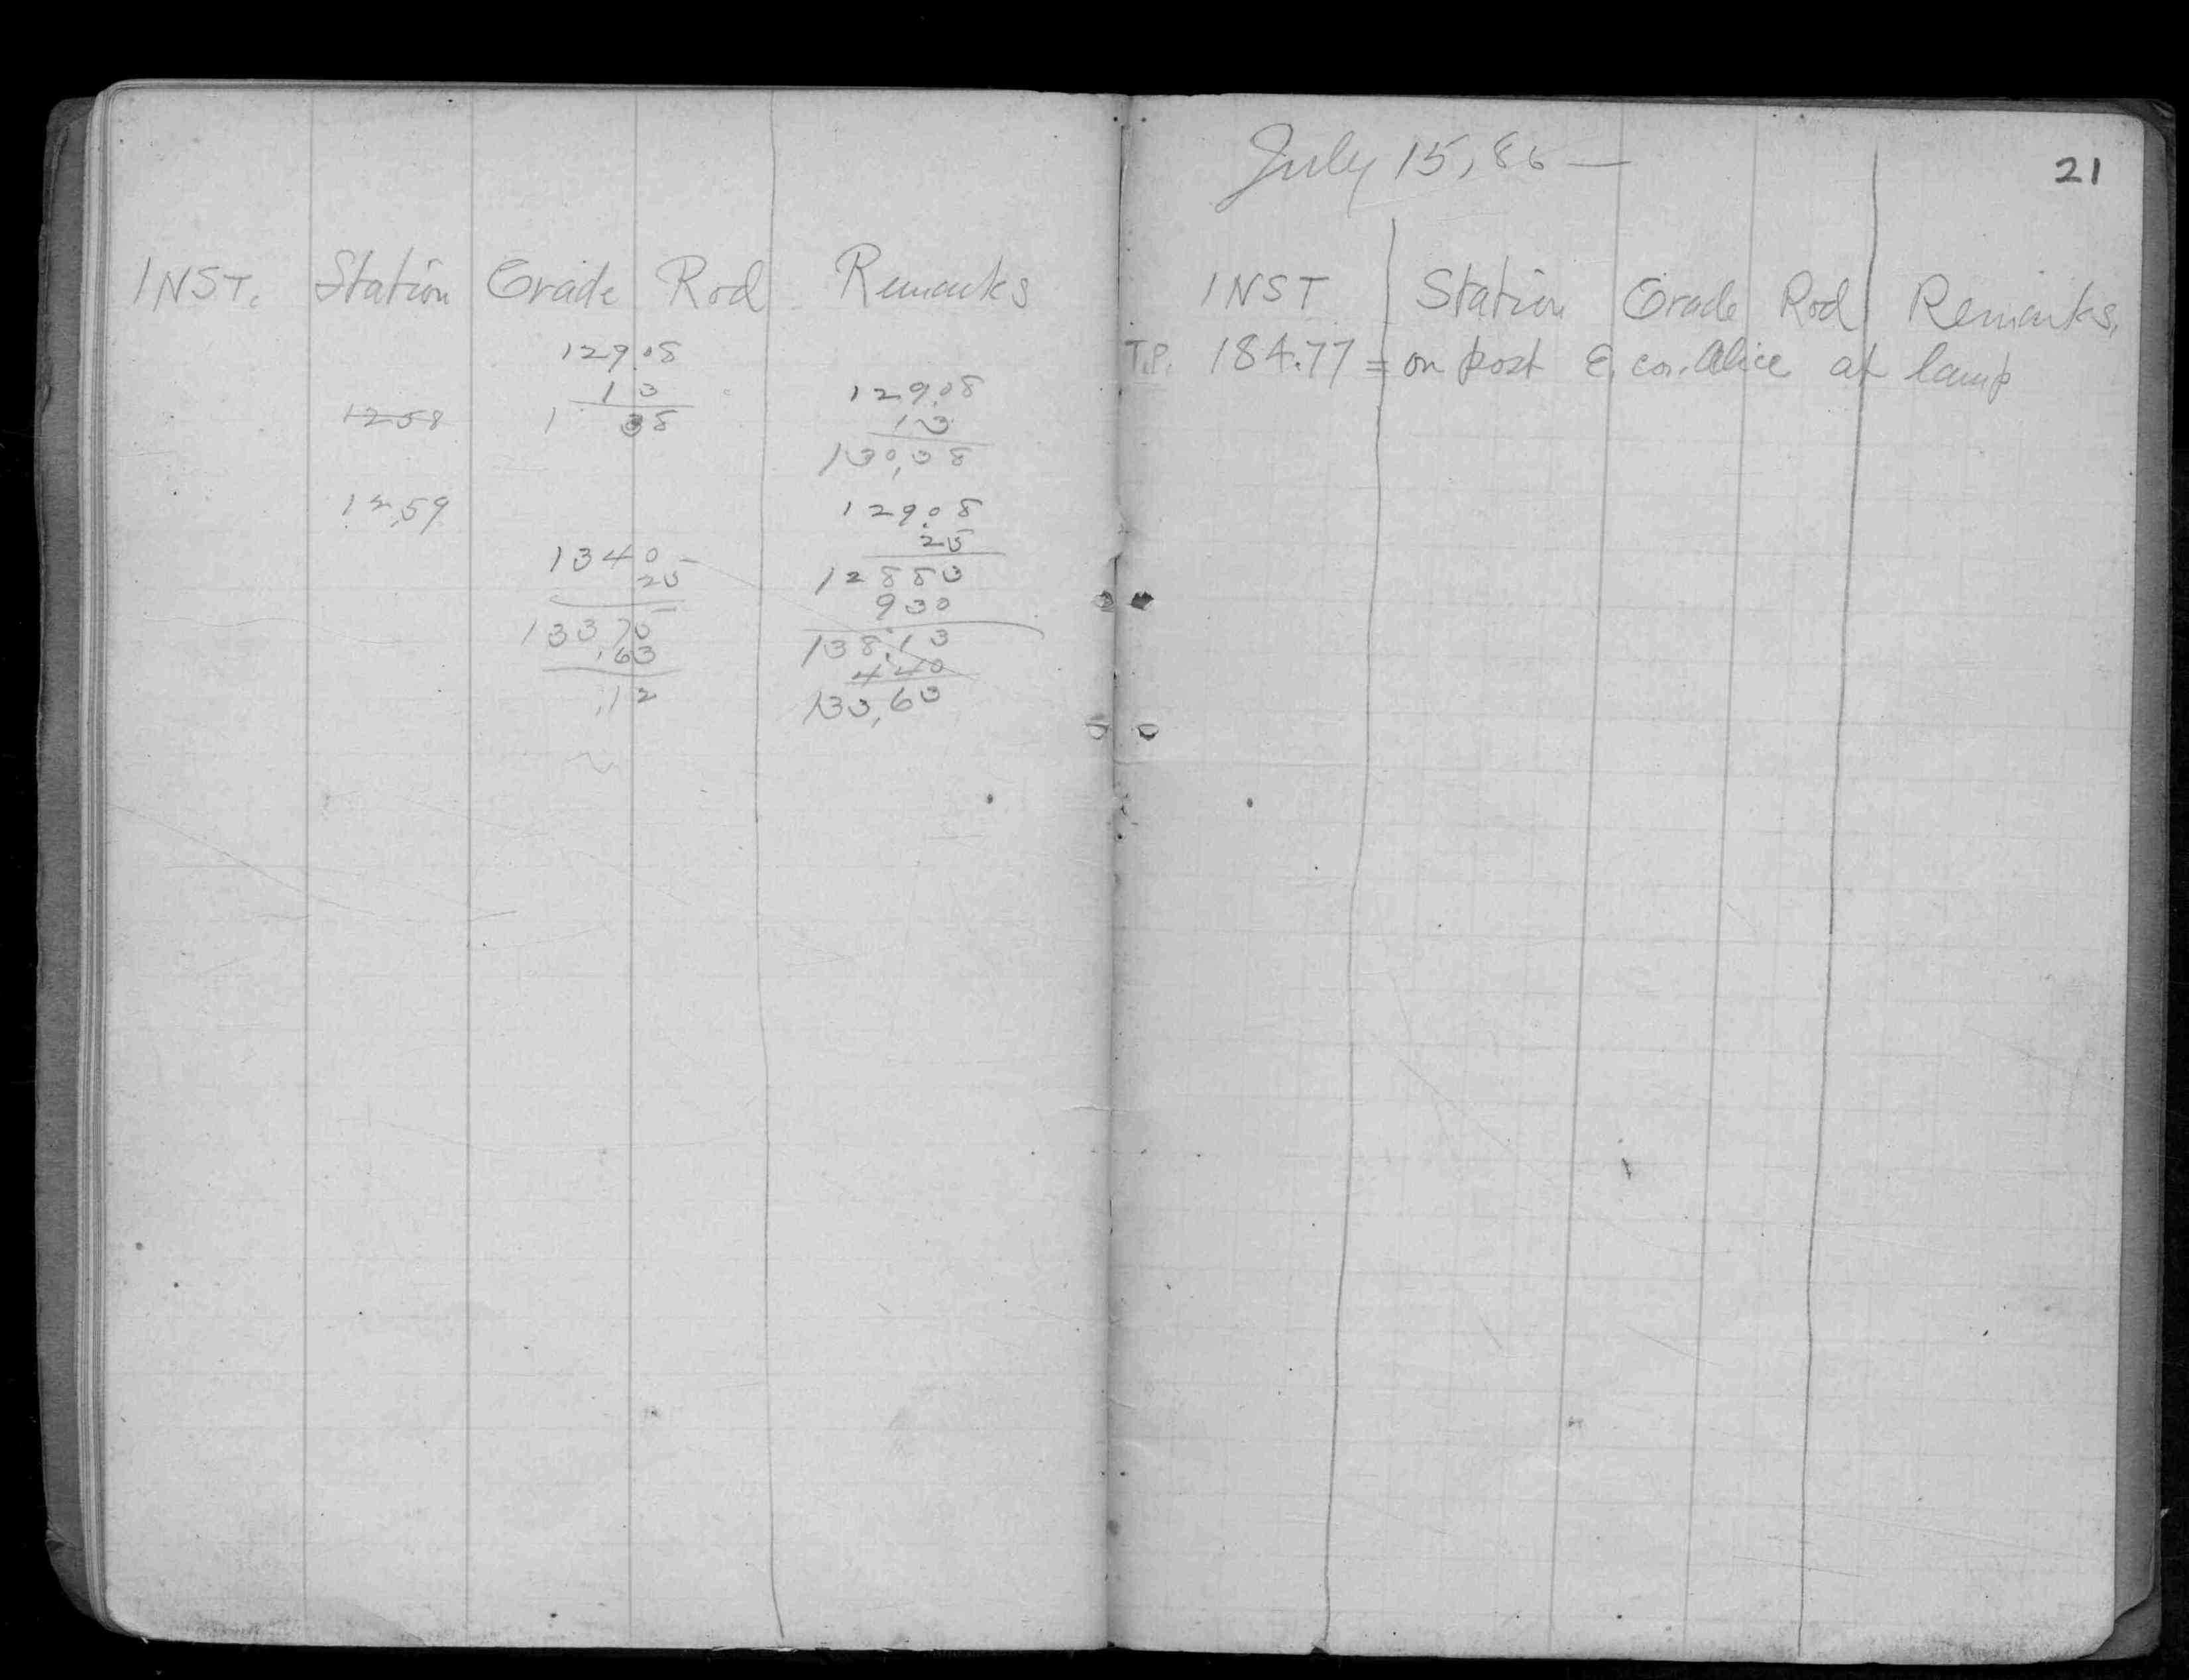 INST. Station Grade Rod Remarks
129.08
13
1258 1 38
129.08
13
130,38
12,59
129.08
25
12883
930
138.13
440
133,63
1340
25
133,75
.63
.12
July 15, 86 —
21
INST Station Grade Rod Remarks,
T.P. 184.77 = on post E. cor. Alice at lamp